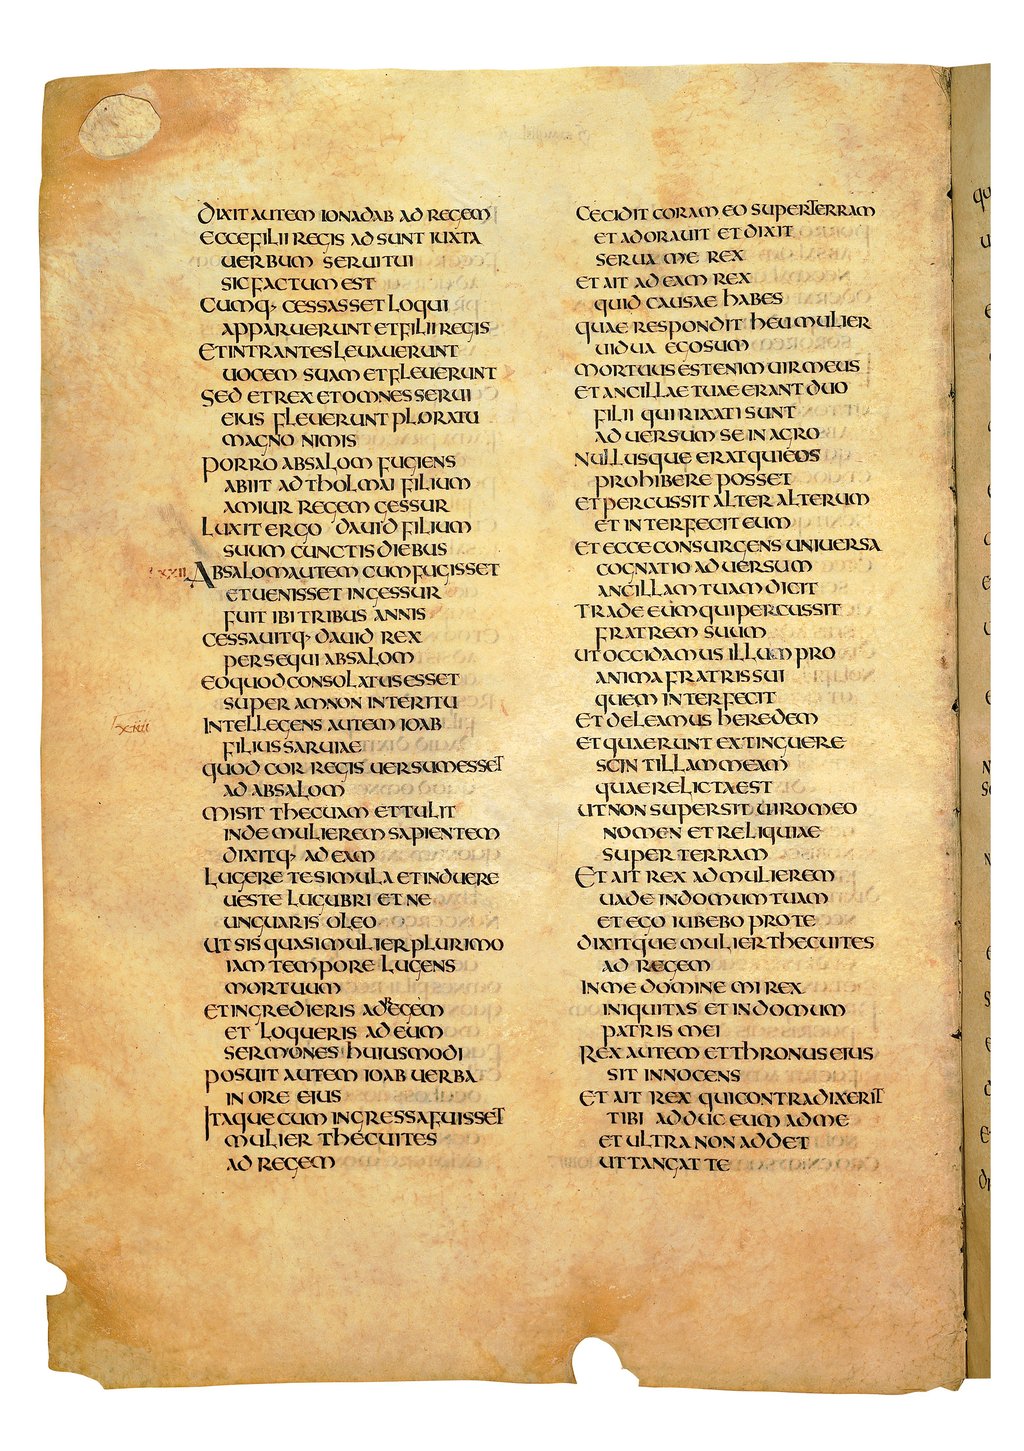 DIXIT AUTEM IONADAB AD REGEM
ECCE FILII REGIS ADSUNT IUXTA
UERBUM SERUI TUI
SIC FACTUM EST
CUMQ· CESSASSET LOQUI
APPARUERUNT ET FILII REGIS
ET INTRANTES LEUAUERUNT
UOCEM SUAM ET FLEUERUNT
SED ET REX ET OMNES SERUI
EIUS FLEUERUNT PLORATU
MAGNO NIMIS
PORRO ABSALOM FUGIENS
ABIIT AD THOLMAI FILIUM
AMIUR REGEM GESSUR
LUXIT ERGO DAUID FILIUM
SUUM CUNCTIS DIEBUS
ABSALOM AUTEM CUM FUGISSET
ET UENISSET IN GESSUR
FUIT IBI TRIBUS ANNIS
CESSAUITQ· DAUID REX
PERSEQUI ABSALOM
EO QUOD CONSOLATUS ESSET
SUPER AMNON INTERITU
INTELLEGENS AUTEM IOAB
FILIUS SARUIAE
QUOD COR REGIS UERSUM ESSET
AD ABSALOM
MISIT THECUAM ET TULIT
INDE MULIEREM SAPIENTEM
DIXITQ· AD EAM
LUGERE TE SIMULA ET INDUERE
UESTE LUGUBRI ET NE
UNGUARIS OLEO
UT SIS QUASI MULIER PLURIMO
IAM TEMPORE LUGENS
MORTUUM
ET INGREDIERIS AD REGEM
ET LOQUERIS AD EUM
SERMONES HUIUSMODI
POSUIT AUTEM IOAB UERBA
IN ORE EIUS
ITAQUE CUM INGRESSA FUISSET
MULIER THECUITES
AD REGEM
CECIDIT CORAM EO SUPER TERRAM
ET ADORAUIT ET DIXIT
SERUA ME REX
ET AIT AD EAM REX
QUID CAUSAE HABES
QUAE RESPONDIT HEU MULIER
UIDUA EGO SUM
MORTUUS EST ENIM UIR MEUS
ET ANCILLAE TUAE ERANT DUO
FILII QUI RIXATI SUNT
ADUERSUM SE IN AGRO
NULLUSQUE ERAT QUI EOS
PROHIBERE POSSET
ET PERCUSSIT ALTER ALTERUM
ET INTERFECIT EUM
ET ECCE CONSURGENS UNIUERSA
COGNATIO ADUERSUM
ANCILLAM TUAM DICIT
TRADE EUM QUI PERCUSSIT
FRATREM SUUM
UT OCCIDAMUS ILLUM PRO
ANIMA FRATRIS SUI
QUEM INTERFECIT
ET DELEAMUS HEREDEM
ET QUAERUNT EXTINGUERE
SCINTILLAM MEAM
QUAE RELICTA EST
UT NON SUPERSIT UIRO MEO
NOMEN ET RELIQUIAE
SUPER TERRAM
ET AIT REX AD MULIEREM
UADE IN DOMUM TUAM
ET EGO IUBEBO PRO TE
DIXITQUE MULIER THECUITES
AD REGEM
IN ME DOMINE MI REX
INIQUITAS ET IN DOMUM
PATRIS MEI
REX AUTEM ET THRONUS EIUS
SIT INNOCENS
ET AIT REX QUI CONTRADIXERIT
TIBI ADDUC EUM AD ME
ET ULTRA NON ADDET
UT TANGAT TE